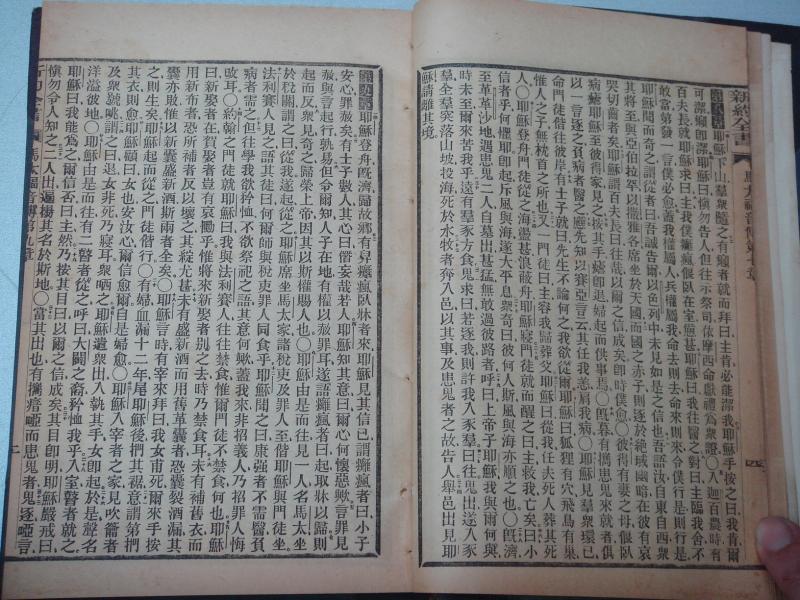 新約全書 馬太福音傳第七章 四
第八章 耶穌下山羣衆隨之有癩者就而拜曰主肯必能潔我耶穌手按之曰我肯爾
可潔癩卽潔耶穌曰愼勿告人但往示祭司依摩西命獻禮爲衆證〇入迦百農時有
百夫長就耶穌求曰主我僕癱瘋偃臥在室患甚耶穌曰我往醫之對曰主臨我舍不
敢當第發一言僕必愈蓋我屬人權兵屬我命去則去命來則來令僕行是則行是
耶穌聞而奇之謂從者曰吾誠告爾以色列中未見如是之信也吾語汝自東自西衆
其將至與亞伯拉罕以撒雅各席坐於天國而國之赤子則逐於絕域幽暗在彼有哀
哭切齒者矣耶穌謂百夫長曰往哉以爾之信成矣卽時僕愈〇彼得有妻之母偃臥
病瘧耶穌至彼得家見之按其手瘧卽退婦起而供事焉〇旣暮有攜患鬼來就者俱
以一言逐之負病者醫之應先知以賽亞言云其任我恙肩我病〇耶穌見羣衆環已
命門徒徃彼岸有士子就曰先生不論何之我欲從爾耶穌曰狐狸有穴飛鳥有巢
惟人之子無枕首之所也又一門徒曰主容我歸葬父耶穌曰從我任夫死人葬其死
人〇耶穌登舟門徒從之海盪甚浪蔽舟耶穌寢門徒就而醒之曰主救我亡矣曰小
信者乎何懼耶卽起斥風與海遂大平息衆奇曰彼何人斯風與海亦順之也〇旣濟
至革革沙地遇患鬼二人自墓出甚猛無敢過彼路者呼曰上帝子耶穌我與爾何與
時未至爾來苦我乎遠有羣豕方食鬼求曰若逐我則許我入豕羣曰往鬼出遂入豕
羣全羣突落山坡投海死於水牧者奔入邑以其事及患鬼者之故告人舉邑出見耶
穌請離其境
第九章 耶穌登舟旣濟歸故鄉有舁癱瘋臥牀者來耶穌見其信已謂癱瘋者曰小子
安心罪赦矣有士子數人其心曰僭妄哉若人耶穌知其意曰爾心何懷惡歟言罪見
赦與言起行孰易但令爾知人子在地有權以赦罪耳遂語癱瘋者曰起取牀以歸則
起而反衆見奇之歸榮上帝因其以斯權賜人也〇耶穌由是而往見一人名馬太坐
於稅關謂之曰從我遂起從之耶穌席坐馬太家諸稅吏及罪人至偕耶穌與門徒坐
法利賽人見之語其徒曰何爾師與稅吏罪人同食乎耶穌聞之曰康强者不需醫負
病者需之但往學我欲矜恤不欲祭祀之語其意何歟蓋我來非招義人乃招罪人悔
改耳〇約翰之門徒就耶穌曰我與法利賽人往往禁食惟爾門徒不禁食何也耶穌
曰新娶者在賀娶者豈有哀慟乎惟將來新娶者別之去時乃禁食耳未有補舊衣而
用新布者恐所補者反以壞之其綻尤甚未有盛新酒而用舊革囊者恐囊裂酒漏其
囊亦敗惟以新囊盛新酒斯兩者全矣〇耶穌言時有宰來拜曰我女甫死爾來手按
之則生矣耶穌起而從之門徒偕行〇有婦血漏十二年尾耶穌後捫其裾意謂第捫
其衣則愈耶穌顧曰女也安汝心爾信愈爾自是婦愈〇耶穌入宰者之家見吹簫者
及衆號咷謂之曰退女非死乃寢耳衆哂之耶穌遣衆出入執其手女卽起於是聲名
洋溢彼地〇耶穌由是而往有二瞽者從之呼曰大闢之裔矜恤我乎入室瞽者就之
耶穌曰我能爲之爾信否曰主然乃按其目曰以爾之信成矣其目卽明耶穌嚴戒曰
愼勿令人知之二人出徧揚其名於斯地〇當其出也有攜瘖瘂而患鬼者鬼逐瘂言
新約全書 馬太福音傳第九章